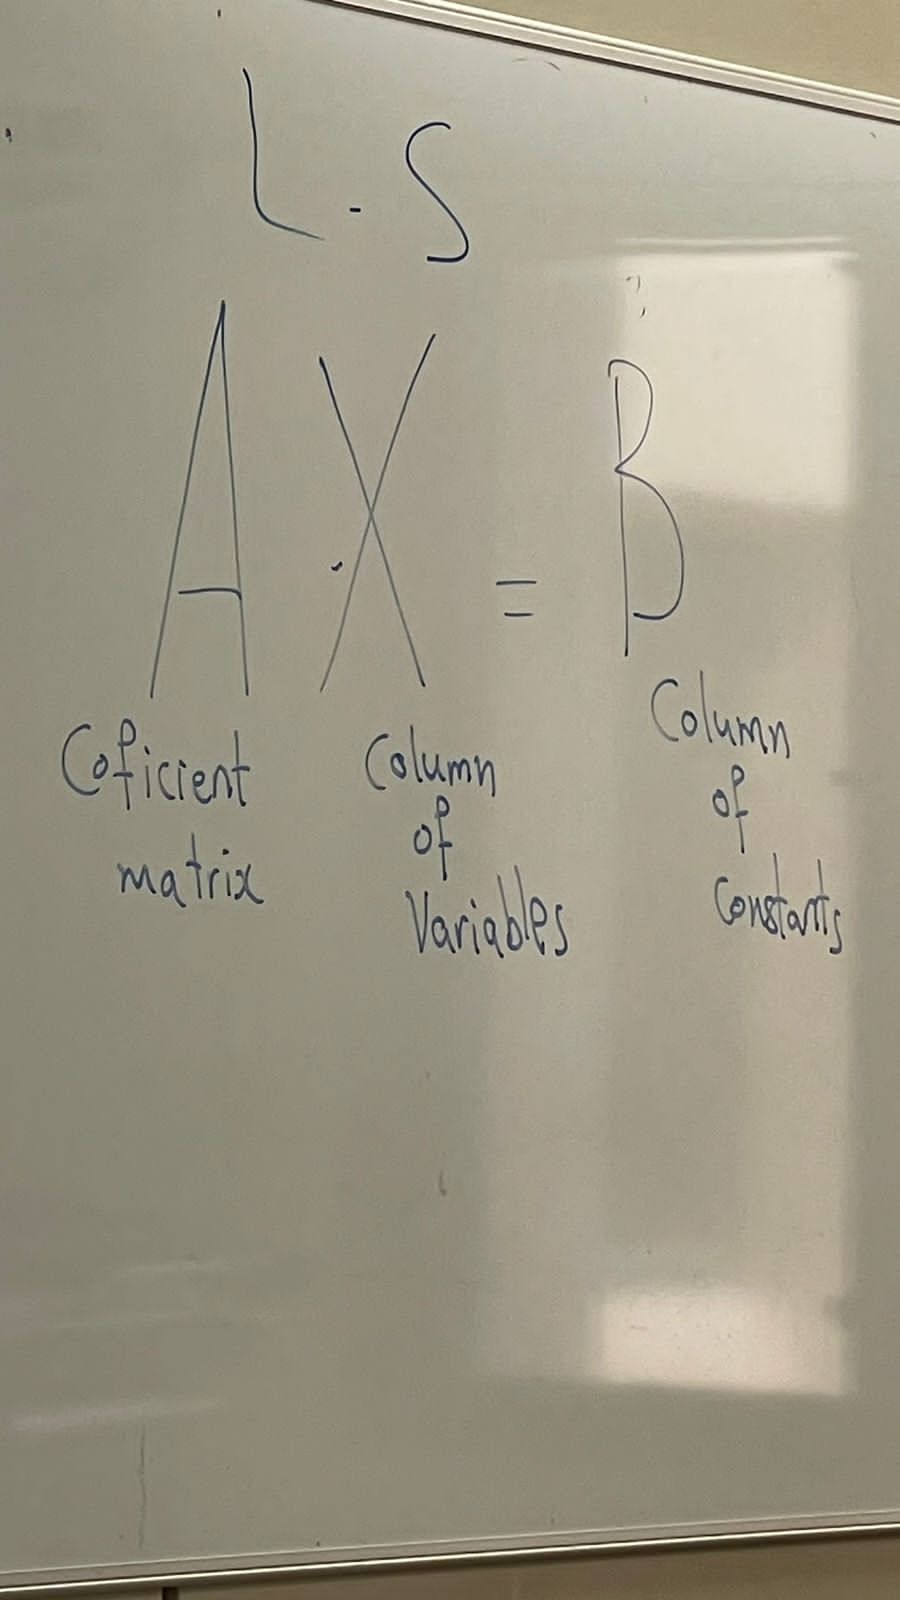 L.S
A . X = B
Coficient matrix
Column of Variables
Column of Constants